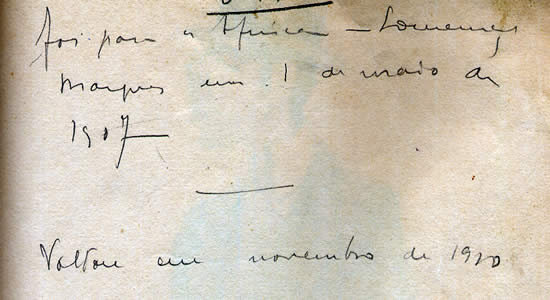 Foi para a Africa – Lourenço
Marques em 1 de maio de
1907
Voltou em novembro de 1910